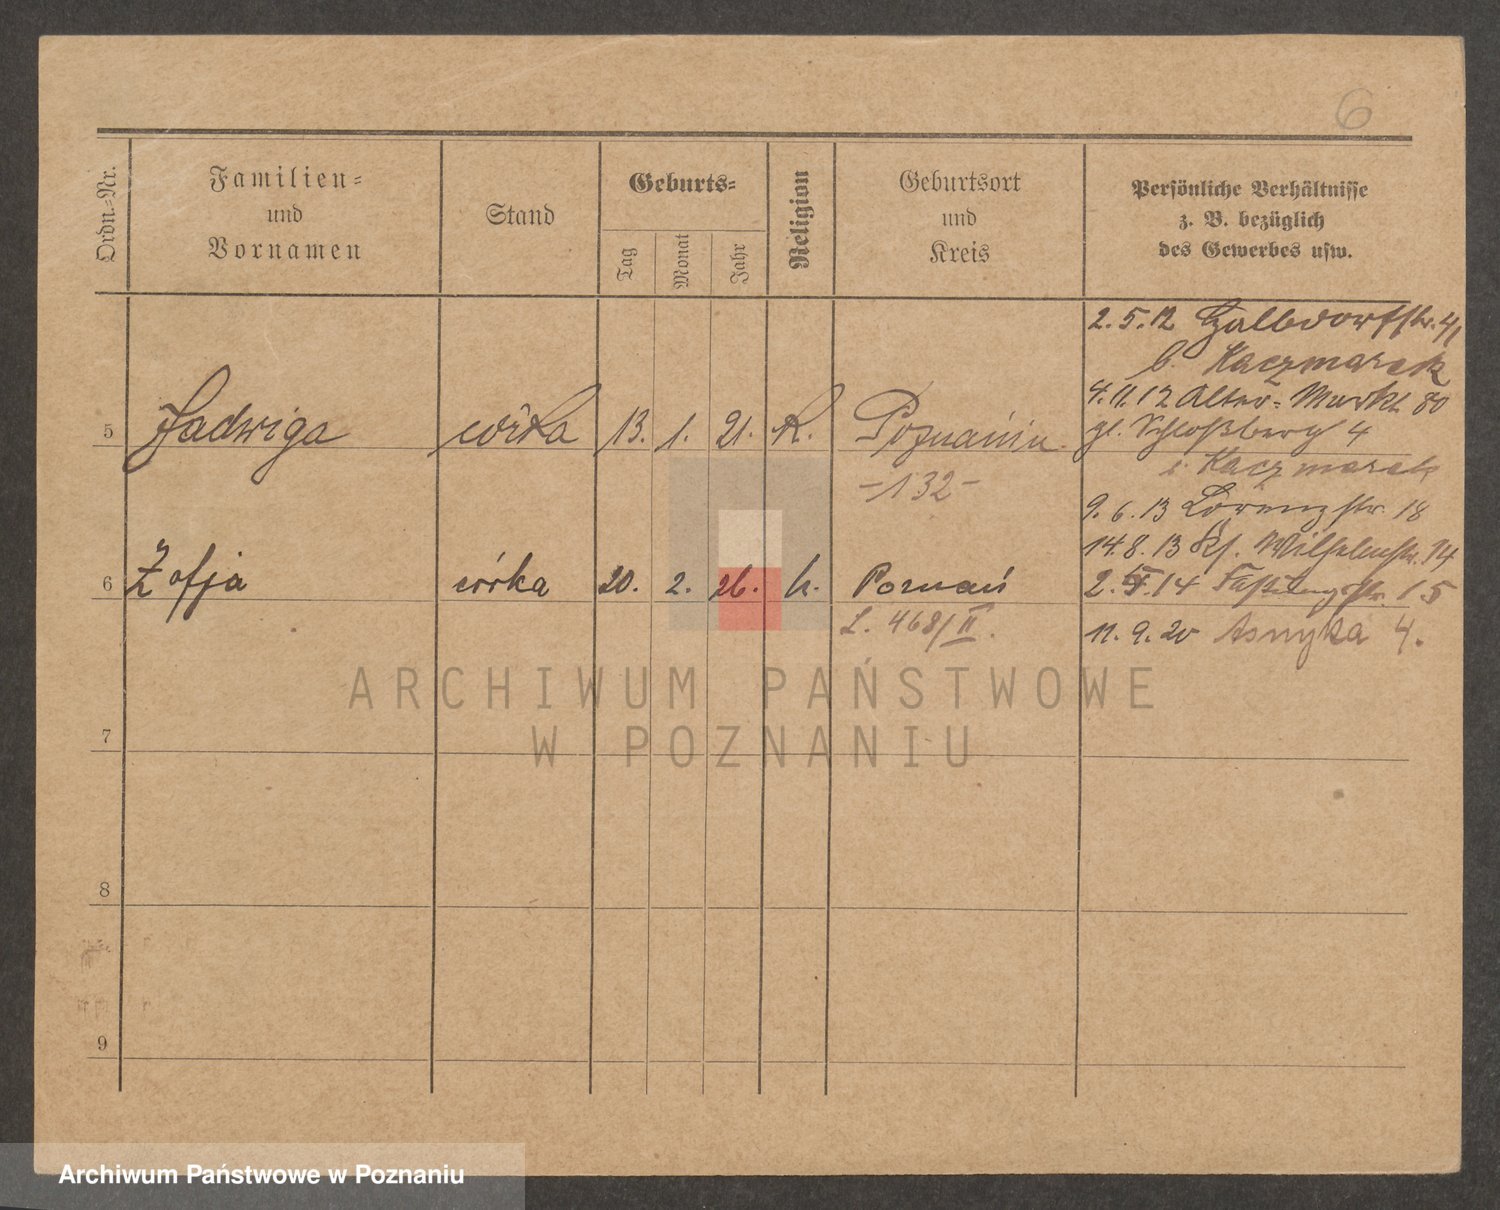 6
Ordn.-Nr.
Familien-
und
Vornamen
Stand
Geburts-
Tag
Monat
Jahr
Religion
Geburtsort
und
Kreis
Persönliche Verhältnisse
z. B. bezüglich
des Gewerbes usw.
2.5.12
b. Kaczmarek
4.11.12 Alter-Markt 80
gl. Schloßberg 4
Kaczmarek
9.6.13 Lorenzstr. 18
14.8.13 Kl. Wilhelmstr. 14
2.5.14
11.9.20 Asnyka 4.
5 Jadwiga córka 13. 1. 21. K. Poznaniu
-132-
6 Zofja córka 20. 2. 26. k. Poznań
L. 468/II.
7
8
9
ARCHIWUM PAŃSTWOWE
W POZNANIU
Archiwum Państwowe w Poznaniu